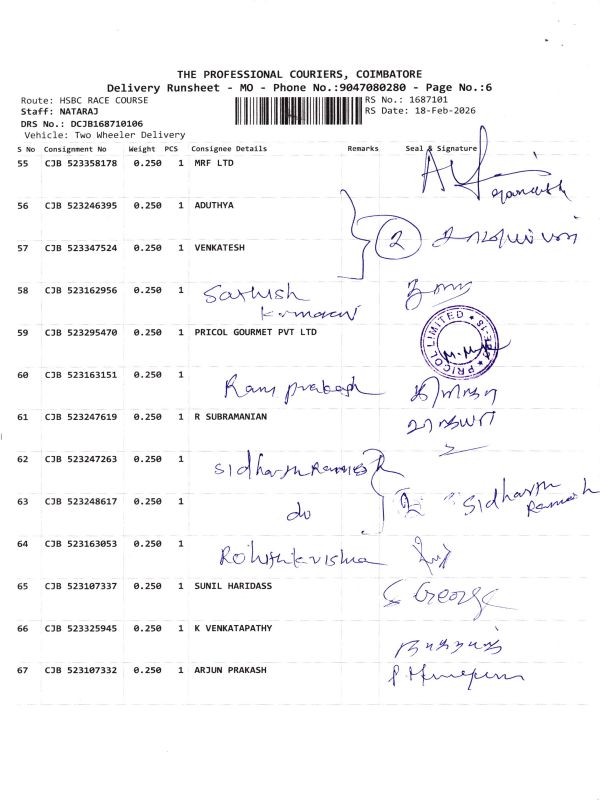 THE PROFESSIONAL COURIERS, COIMBATORE
Delivery Runsheet - MO - Phone No.:9047080280 - Page No.:6
Route: HSBC RACE COURSE
RS No.: 1687101
Staff: NATARAJ
RS Date: 18-Feb-2026
DRS No.: DCJB168710106
Vehicle: Two Wheeler Delivery
S No Consignment No Weight PCS Consignee Details Remarks Seal & Signature
55 CJB 523358178 0.250 1 MRF LTD
56 CJB 523246395 0.250 1 ADUTHYA
2
57 CJB 523347524 0.250 1 VENKATESH
58 CJB 523162956 0.250 1 Sathish
Kumaran
59 CJB 523295470 0.250 1 PRICOL GOURMET PVT LTD
PRICOL LIMITED
60 CJB 523163151 0.250 1 Ram prakash
61 CJB 523247619 0.250 1 R SUBRAMANIAN
62 CJB 523247263 0.250 1 Sidharth Ramesh
63 CJB 523248617 0.250 1 do 2 Sidharth
Ramesh
64 CJB 523163053 0.250 1 Rohithkrishna
65 CJB 523107337 0.250 1 SUNIL HARIDASS George
66 CJB 523325945 0.250 1 K VENKATAPATHY
67 CJB 523107332 0.250 1 ARJUN PRAKASH